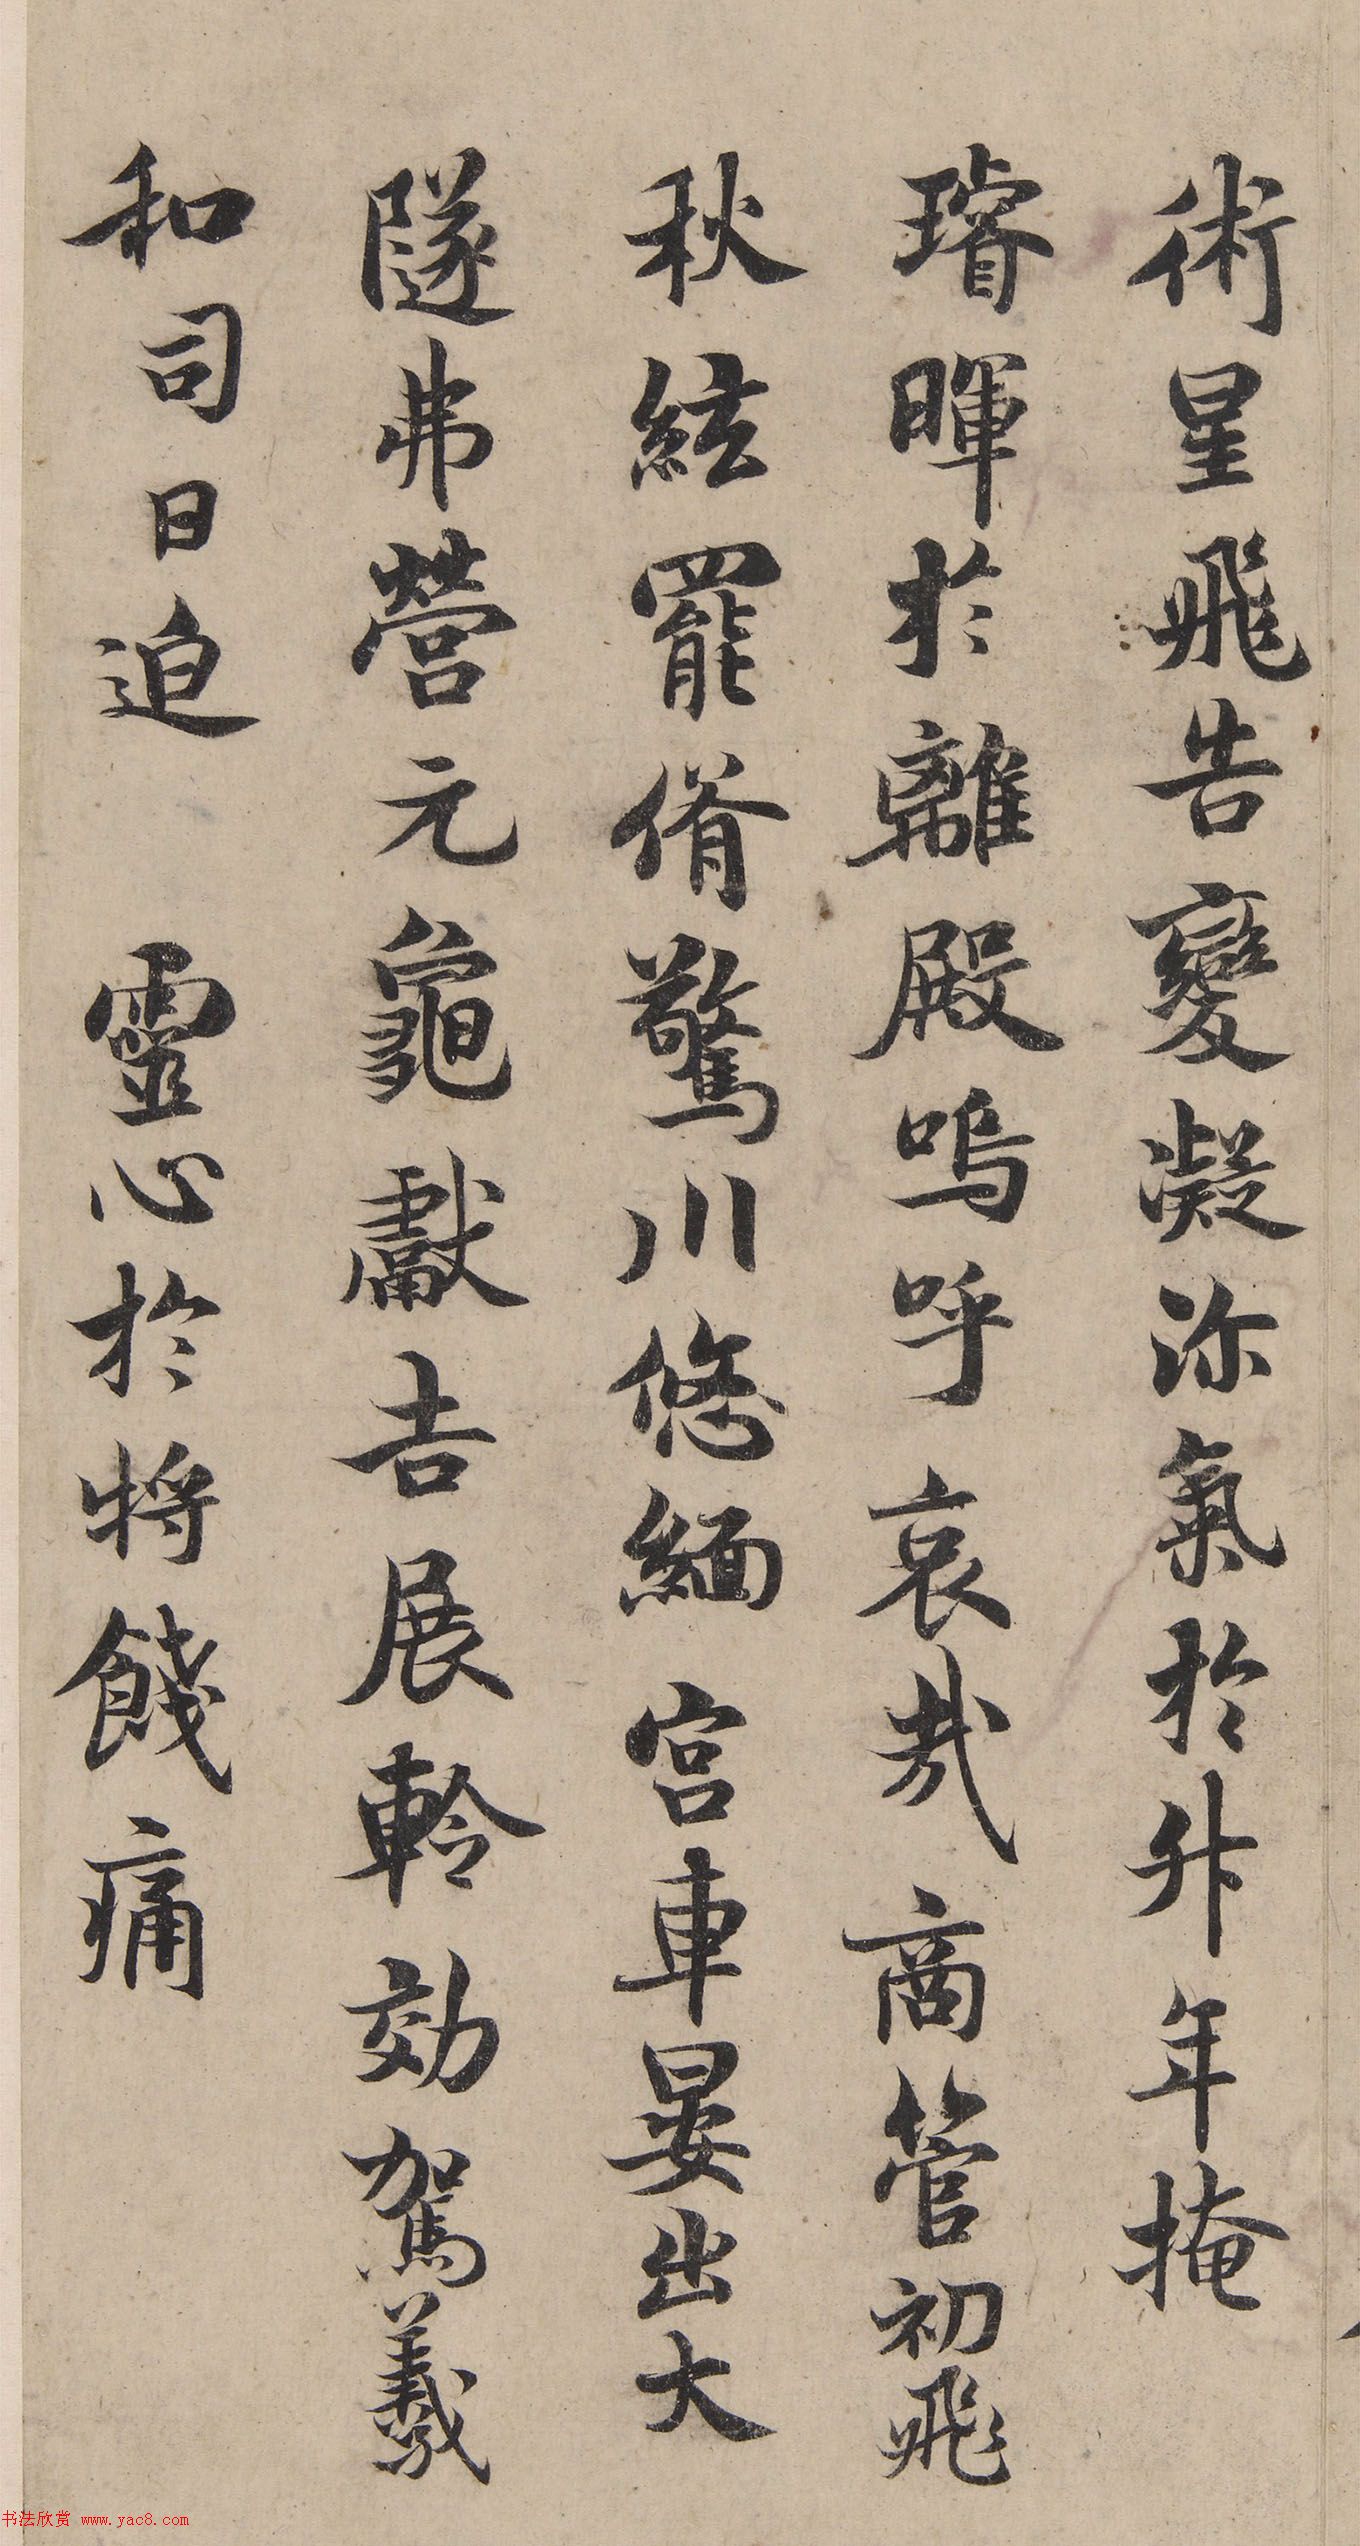 術星飛告變凝沴氣於升年掩
璿暉於離殿嗚呼哀哉商管初飛
秋絃罷偦驚川悠緬宮車晏出大
隧弗營元龜獻吉展軨効駕羲
和司日迫　靈心於將餞痛
书法欣赏 www.yac8.com